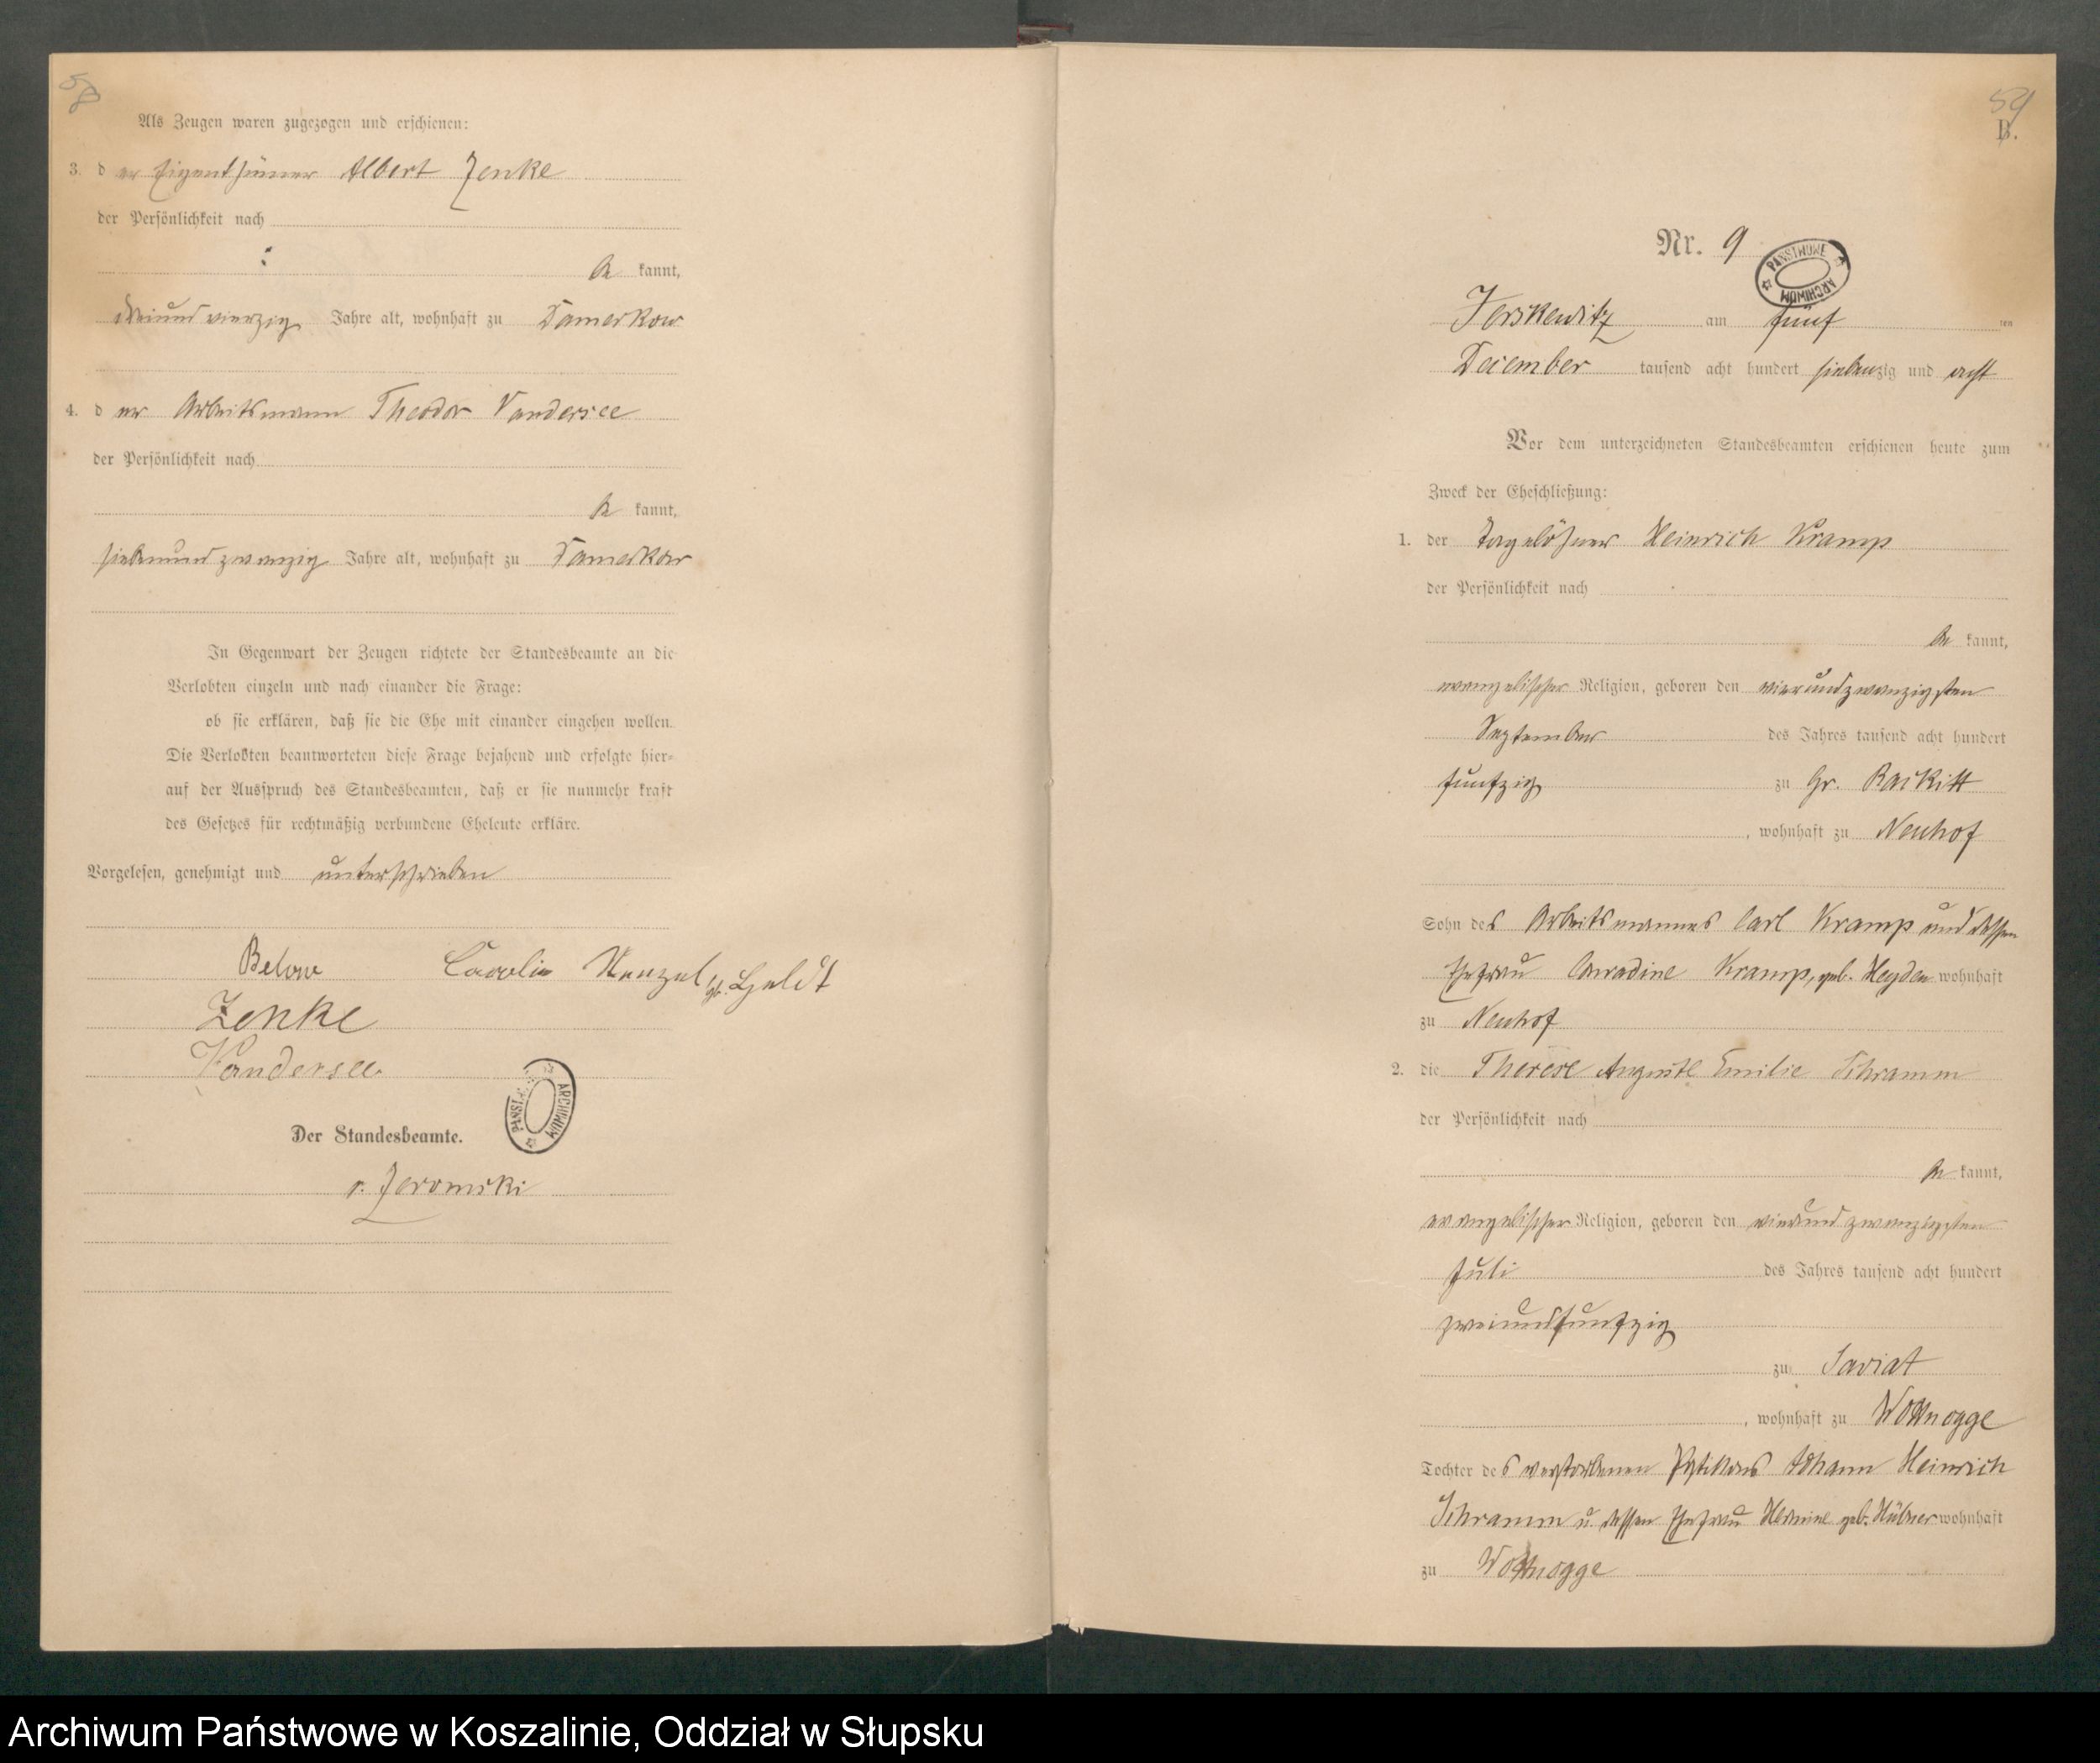 58
Als Zeugen waren zugezogen und erschienen:
3. der Eigenthümer Albert Zenke
der Persönlichkeit nach
be kannt,
dreiundvierzig Jahre alt, wohnhaft zu Damerkow
4. der Arbeitsmann Theodor Vandersee
der Persönlichkeit nach
be kannt,
siebenundzwanzig Jahre alt, wohnhaft zu Damerkow
In Gegenwart der Zeugen richtete der Standesbeamte an die
Verlobten einzeln und nach einander die Frage:
ob sie erklären, daß sie die Ehe mit einander eingehen wollen.
Die Verlobten beantworteten diese Frage bejahend und erfolgte hier-
auf der Ausspruch des Standesbeamten, daß er sie nunmehr kraft
des Gesetzes für rechtmäßig verbundene Eheleute erkläre.
Vorgelesen, genehmigt und unterschrieben
Below Carolin geb.
Zenke
Vandersee
PAŃSTWOWE ARCHIWUM
Der Standesbeamte.
v. Zeromski
59
B.
Nr. 9
PAŃSTWOWE ARCHIWUM
Jerskewitz am fünf ten
December tausend acht hundert siebenzig und acht
Vor dem unterzeichneten Standesbeamten erschienen heute zum
Zweck der Eheschließung:
1. der Tagelöhner Heinrich Kramp
der Persönlichkeit nach
be kannt,
evangelischer Religion, geboren den vierundzwanzigsten
September des Jahres tausend acht hundert
funfzig zu Gr. Rackitt
, wohnhaft zu Neuhof
Sohn des Arbeitsmannes Carl Kramp und dessen
Ehefrau Conradine Kramp, geb. Heyden wohnhaft
zu Neuhof
2. die Therese Auguste Emilie Schramm
der Persönlichkeit nach
be kannt,
evangelischer Religion, geboren den vierundzwanzigsten
Juli des Jahres tausend acht hundert
zweiundfunfzig
zu Saviat
, wohnhaft zu Wottnogge
Tochter des verstorbenen Johann Heinrich
Schramm u. dessen Ehefrau geb. Hübner wohnhaft
zu Wottnogge
Archiwum Państwowe w Koszalinie, Oddział w Słupsku